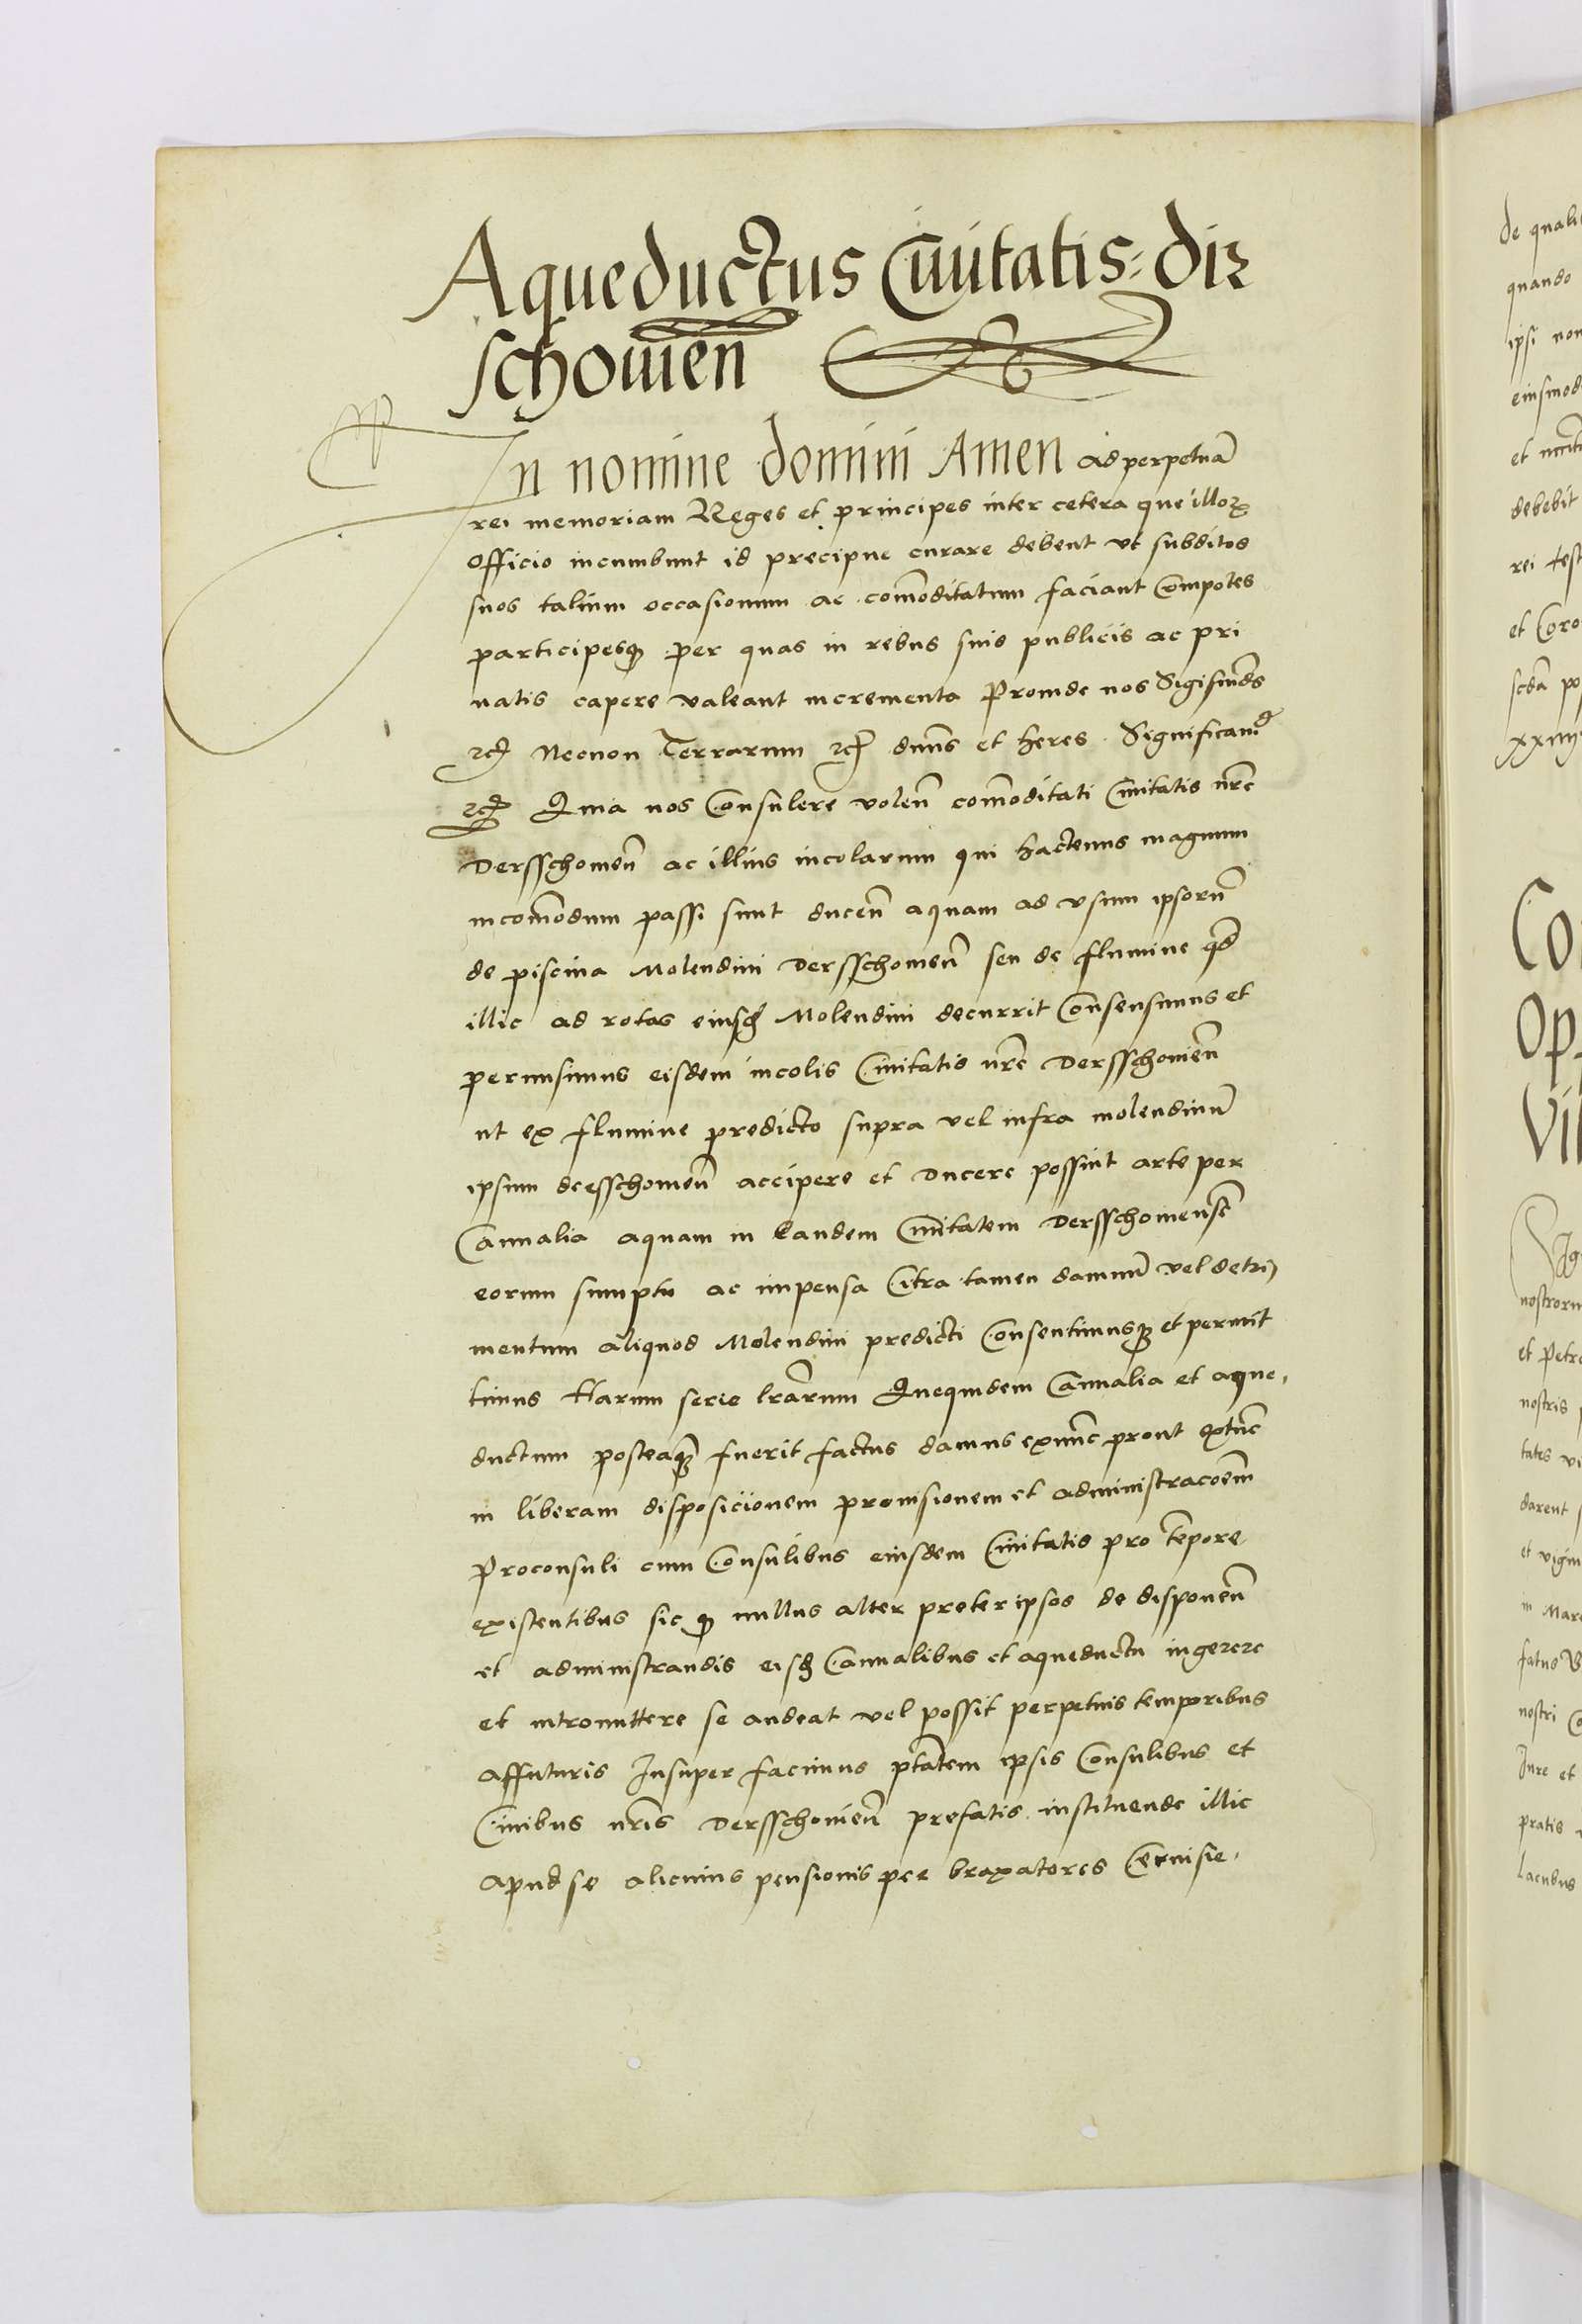 Aqueductus Civitatis dir
schovien̄
In nomine domini Amen ad perpetuā
rei memoriam Reges et principes inter cetera que illoꝝ
officio incumbunt id precipue curare debent ut subditos
suos talium occasionum ac com̄oditatum faciant Compotes
participesqꝫ per quas in rebus suis publicis ac pri
uatis capere valeant incrementa Proinde nos Sigismūdus
etc̄ Necnon Terrarum etc̄ dn̄us et heres Significam̄
etc̄ Quia nos Consulere volen̄ com̄oditati Ciuitatis nr̄e
Dersschouien̄ ac illius incolarum qui hactenus magnum
incom̄odum passi sunt ducen̄ aquam ad vsum ipsorum̄
de piscina Molendini Dersschouien̄ seu de flumine qd̄
illic ad rotas eiusd̄ Molendini decurrit Consensimus et
permisimus eisdem incolis Ciuitatis nr̄e Dersschouien̄
ut ex flumine predicto supra vel infra molendinū
ipsum dersschouien̄ accipere et ducere possint arte per
Cannalia aquam in Eandem Ciuitatem Dersschouiensē
eorum sumptu ac impensa Citra tamen damnū vel detri
mentum aliquod Molendini predicti Consentimusqꝫ et permit
timus Harum serie lr̄arum Quequidem Cannalia et aque
ductum posteaqꝫ fuerit factus damus exnunc prout extunc
in liberam disposicionem prouisionem et administracōem
Proconsuli cum Consulibus eiusdem Ciuitatis pro tēpore
existentibus sic qꝫ nullus alter preter ipsos de disponen̄
et administrandis eisd̄ Cannalibus et aqueductu ingerere
et intromittere se audeat vel possit perpetuis temporibus
affuturis Insuper facimus ptātem ipsis Consulibus et
Ciuibus nr̄is Dersschouien̄ prefatis instituende illic
apud se alicuius pensionis per braxatores Ceruisie
de quali
quando
ipsi non
eiusmod
debebit
rei test
et Coro
Co
Op
Vil
nostroru
et Petro
nostris
tates vi
darent
et vigin
in Mar
fatus
nostri
Jure et
pratis
lacubus